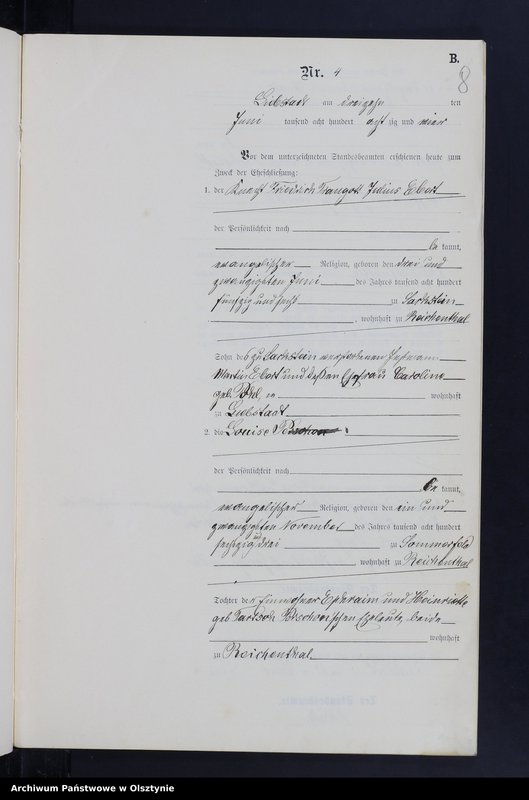 B.
8
Nr. 4
Liebstadt am dreizehn ten
Juni tausend acht hundert acht zig und vier
Vor dem unterzeichneten Standesbeamten erschienen heute zum
Zweck der Eheschließung:
1. der Knecht Friedrich Julius Ebert
der Persönlichkeit nach
be kannt,
evangelischer Religion, geboren den drei und
zwanzigsten Juni des Jahres tausend acht hundert
fünfzig und sechs zu Sackstein
, wohnhaft zu Reichenthal
Sohn des zu Sackstein verstorbenen
Martin Ebert und dessen Ehefrau Caroline
geb. wohnhaft
zu Liebstadt
2. die Louise
der Persönlichkeit nach
be kannt,
evangelischer Religion, geboren den ein und
zwanzigsten November des Jahres tausend acht hundert
sechzig und drei zu Sommerfeld
, wohnhaft zu Reichenthal
Tochter der Einwohner Ephraim und Henriette
geb. Eheleute, beide
wohnhaft
zu Reichenthal
Archiwum Państwowe w Olsztynie